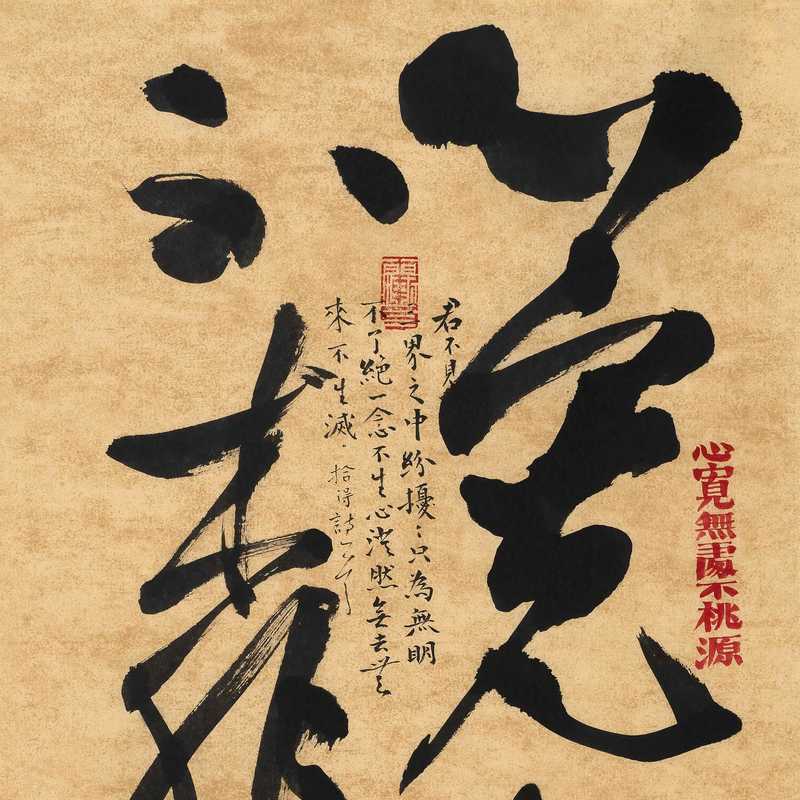 心寬
心寬無處不桃源
君不見
界之中紛擾〻只為無明
不了絕一念不生心澄然無去無
來不生滅 拾得詩一首